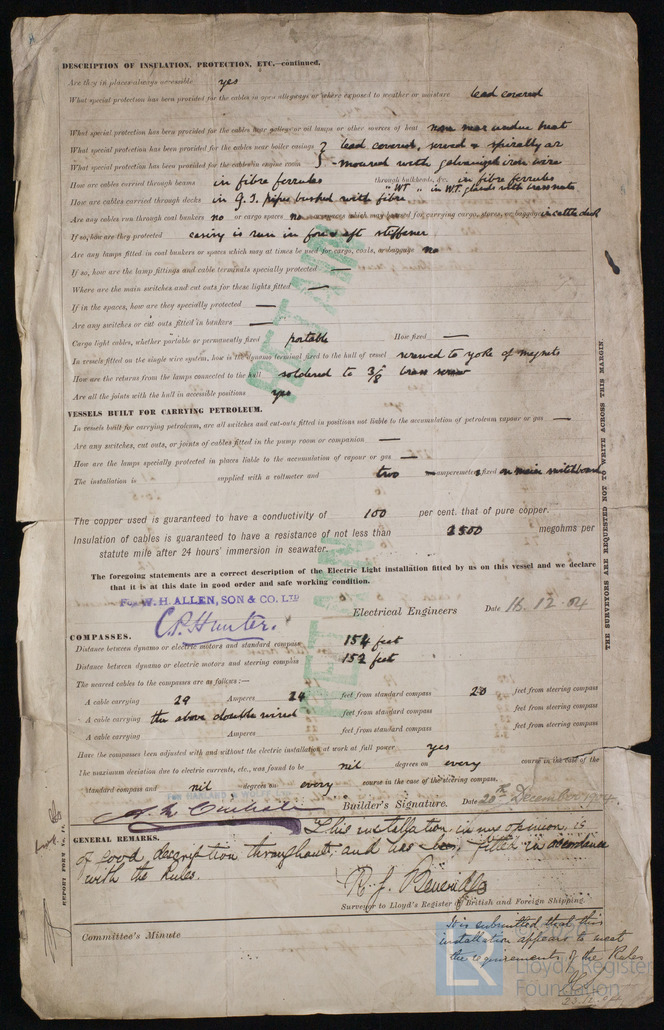 DESCRIPTION OF INSULATION, PROTECTION, ETC.—continued.
Are they in places always accessible yes
What special protection has been provided for the cables in open alleyways or where exposed to weather or moisture lead covered
What special protection has been provided for the cables near galleys or oil lamps or other sources of heat none near undue heat
What special protection has been provided for the cables near boiler casings } lead covered, served & spirally ar
What special protection has been provided for the cables in engine room } -moured with galvanized iron wire
How are cables carried through beams in fibre ferrules through bulkheads, &c. in fibre ferrules
"WT" in W.T. glands with brass nuts
How are cables carried through decks in G.I. pipes bushed with fibre
Are any cables run through coal bunkers no or cargo spaces no or spaces which may be used for carrying cargo, stores, or baggage in cattle deck
If so, how are they protected casing is run in fore & aft stiffener
Are any lamps fitted in coal bunkers or spaces which may at times be used for cargo, coals, or baggage no
If so, how are the lamp fittings and cable terminals specially protected —
Where are the main switches and cut outs for these lights fitted —
If in the spaces, how are they specially protected —
Are any switches or cut outs fitted in bunkers —
Cargo light cables, whether portable or permanently fixed portable How fixed —
In vessels fitted on the single wire system, how is the dynamo terminal fixed to the hull of vessel screwed to yoke of magnets
How are the returns from the lamps connected to the hull soldered to 3/8" brass screw
Are all the joints with the hull in accessible positions yes
VESSELS BUILT FOR CARRYING PETROLEUM.
In vessels built for carrying petroleum, are all switches and cut-outs fitted in positions not liable to the accumulation of petroleum vapour or gas —
Are any switches, cut outs, or joints of cables fitted in the pump room or companion —
How are the lamps specially protected in places liable to the accumulation of vapour or gas —
The installation is supplied with a voltmeter and two amperemeters fixed on main switchboard
The copper used is guaranteed to have a conductivity of 100 per cent. that of pure copper.
Insulation of cables is guaranteed to have a resistance of not less than 2500 megohms per
statute mile after 24 hours' immersion in seawater.
The foregoing statements are a correct description of the Electric Light installation fitted by us on this vessel and we declare
that it is at this date in good order and safe working condition.
For W. H. ALLEN, SON & CO. LTD
C.P. Hunter. Electrical Engineers Date 16.12.04
COMPASSES.
Distance between dynamo or electric motors and standard compass 154 feet
Distance between dynamo or electric motors and steering compass 152 feet
The nearest cables to the compasses are as follows:—
A cable carrying 29 Amperes 24 feet from standard compass 20 feet from steering compass
A cable carrying the above double wired feet from standard compass feet from steering compass
A cable carrying Amperes feet from standard compass feet from steering compass
Have the compasses been adjusted with and without the electric installation at work at full power yes
The maximum deviation due to electric currents, etc., was found to be nil degrees on every course in the case of the
standard compass and nil degrees on every course in the case of the steering compass.
Builder's Signature. Date 20th December 1904.
GENERAL REMARKS.
This installation, in my opinion, is
of good description throughout, and has been fitted in accordance
with the Rules.
Surveyor to Lloyd's Register of British and Foreign Shipping.
Committee's Minute
It is submitted that this
installation appears to meet
the requirements of the Rules
23.12.04
THE SURVEYORS ARE REQUESTED NOT TO WRITE ACROSS THIS MARGIN.
REPORT FORM No. 14.
Lloyd's Register
Foundation